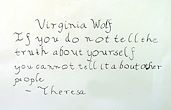 Virginia Wolf
If you do not tell the
truth about yourself
you cannot tell it about other
people
~ Theresa